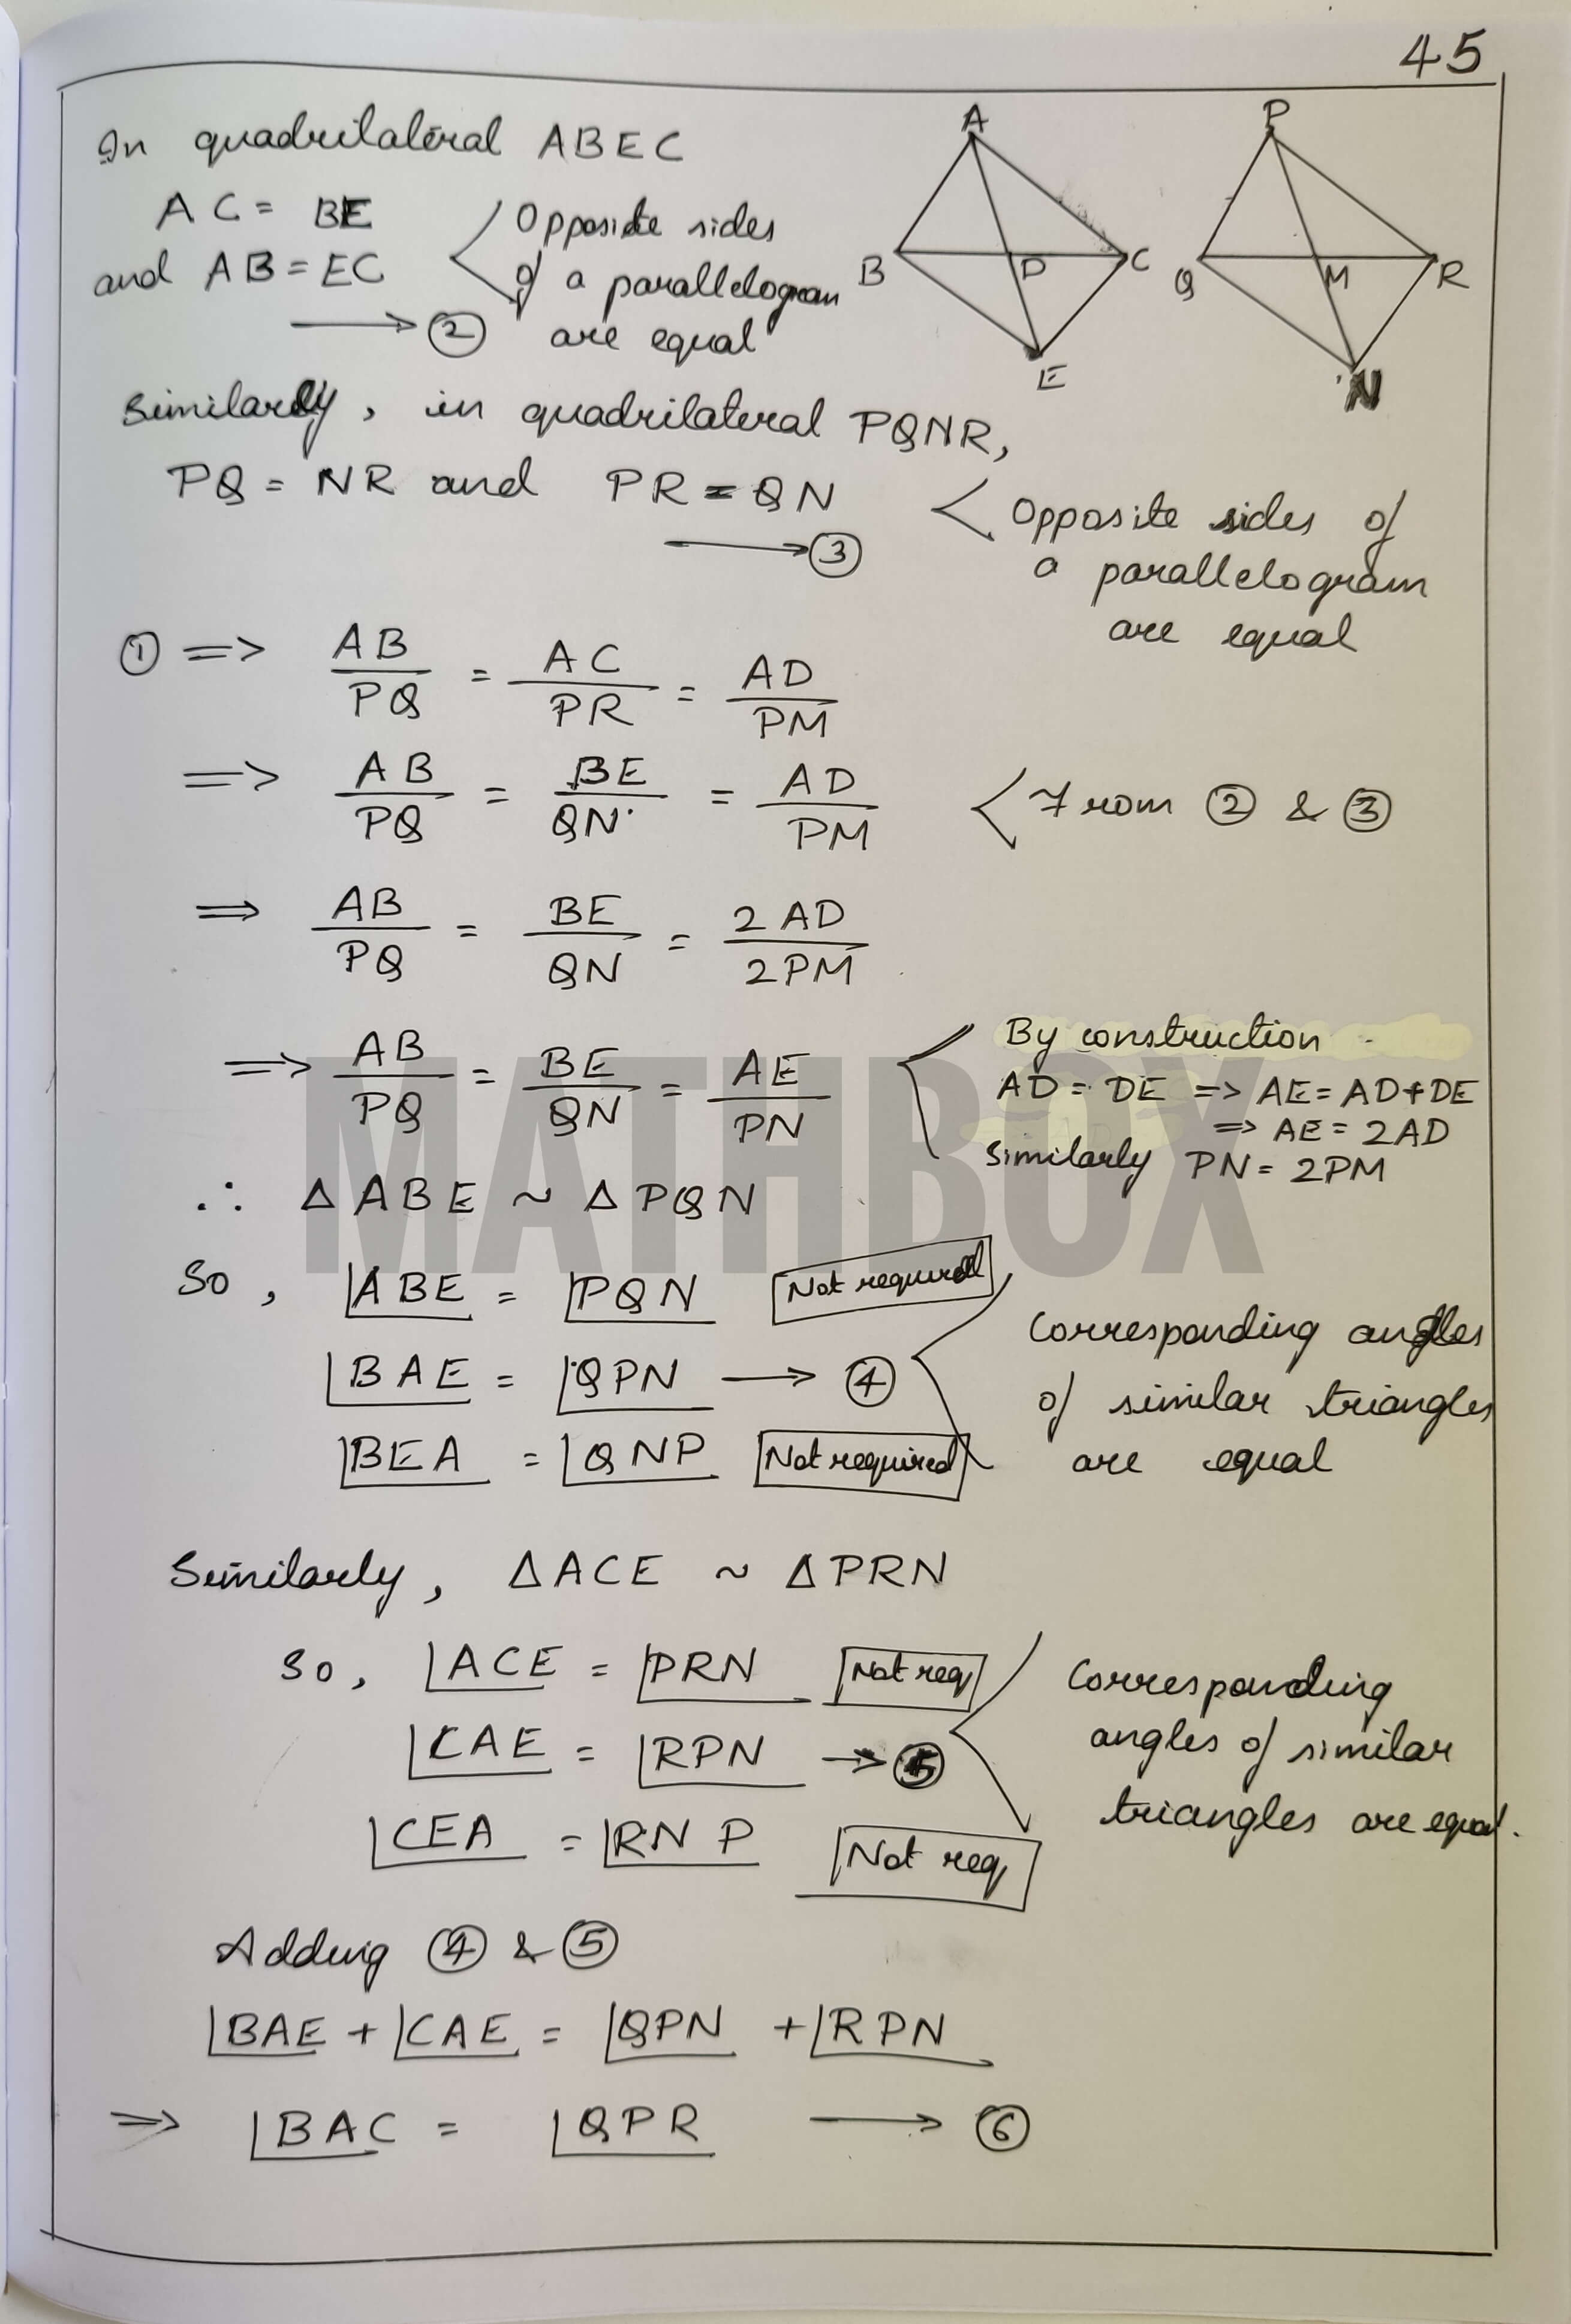 45
In quadrilateral ABEC
AC = BE
and AB = EC
→ ②
Opposite sides
of a parallelogram
are equal
A
B
D
C
E
P
Q
M
R
N
Similarly, in quadrilateral PQNR,
PQ = NR and PR = QN
→ ③
Opposite sides of
a parallelogram
are equal
① => AB/PQ = AC/PR = AD/PM
=> AB/PQ = BE/QN = AD/PM
From ② & ③
=> AB/PQ = BE/QN = 2AD/2PM
=> AB/PQ = BE/QN = AE/PN
By construction
AD = DE => AE = AD+DE
=> AE = 2AD
Similarly PN = 2PM
MATHBOX
∴ Δ ABE ~ Δ PQN
So, ∠ABE = ∠PQN Not required
∠BAE = ∠QPN → ④
∠BEA = ∠QNP Not required
Corresponding angles
of similar triangles
are equal
Similarly, ΔACE ~ ΔPRN
So, ∠ACE = ∠PRN Not req
∠CAE = ∠RPN → ⑤
∠CEA = ∠RNP Not req
Corresponding
angles of similar
triangles are equal.
Adding ④ & ⑤
∠BAE + ∠CAE = ∠QPN + ∠RPN
=> ∠BAC = ∠QPR → ⑥